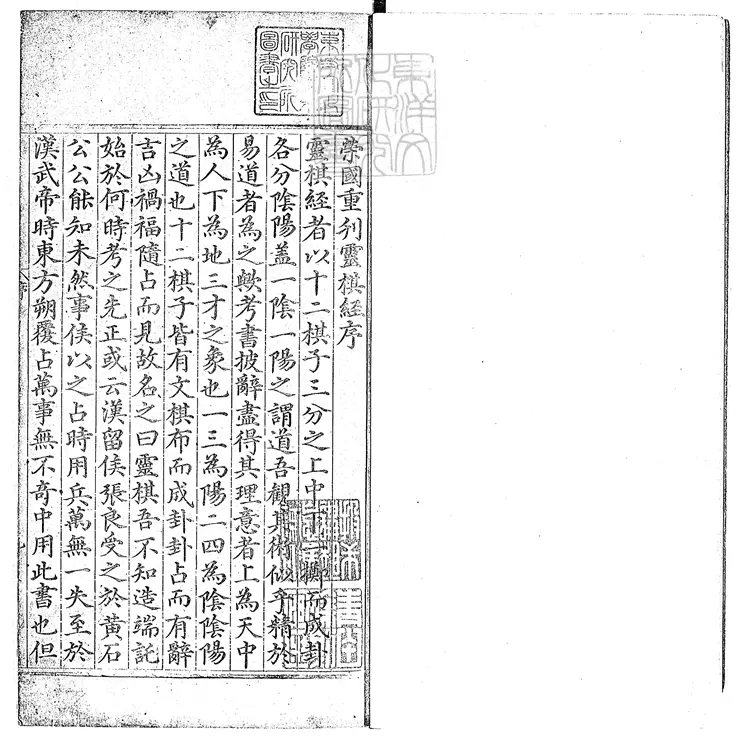 榮國重刋靈棋經序
靈棋經者以十二棋子三分之上中下一擲而成卦
各分陰陽盖一陰一陽之謂道吾觀其術似乎精於
易道者為之歟考書披辭盡得其理意者上為天中
為人下為地三才之象也一三為陽二四為陰陰陽
之道也十二棋子皆有文棋布而成卦卦占而有辭
吉凶禍福隨占而見故名之曰靈棋吾不知造端託
始於何時考之先正或云漢留侯張良受之於黄石
公公能知未然事侯以之占時用兵萬無一失至於
漢武帝時東方朔覆占萬事無不奇中用此書也但